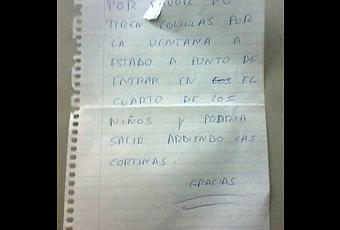 POR FAVOR NO
TIREN COLILLAS POR
LA VENTANA A
ESTADO A PUNTO DE
ENTRAR EN EL
CUARTO DE LOS
NIÑOS Y PODRIA
SALIR ARDIENDO LAS
CORTINAS
GRACIAS